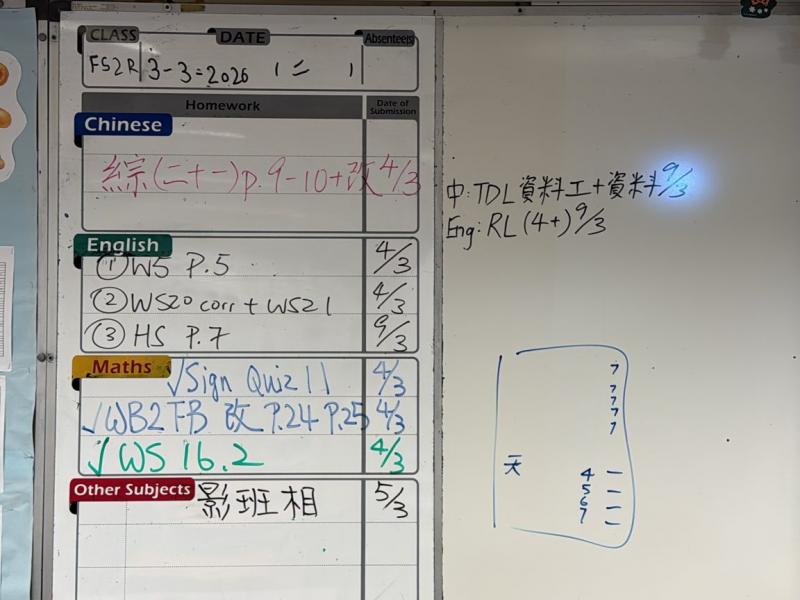 CLASS DATE Absentee(s)
3-3-2026 1 二 1
Homework Date of Submission
Chinese
綜(二十一)p.9-10+改 4/3
English
① WS P.5 4/3
② WS20 corr + WS21 4/3
③ HS P.7 9/3
Maths
√Sign Quiz 11 4/3
√WB2FB 改 P.24 P.25 4/3
√WS 16.2 4/3
Other Subjects
影班相 5/3
中:TDL資料工+資料 9/3
Eng: RL (4+) 9/3
7
7
7
7
7
天
4 一
5 一
6 一
7 一